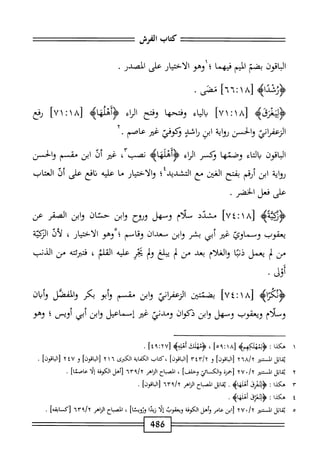 كتاب الفرش
الباقون بضمّ الميم فيهما ؛ ١وهو الاختيار على المصدر .
﴿رُشْدًا﴾ [٦٦:١٨] مَضَى .
﴿لِيَغْرَقَ﴾ [٧١:١٨] بالياء وفتحها وفتح الراء ﴿أَهْلُهَا﴾ [٧١:١٨] رفع
الزعفرانيّ والحسن رواية ابن راشدٍ وكوفيّ غير عاصم .٢
الباقون بالتاء وضمّها وكسر الراء ﴿أَهْلَهَا﴾ نصب٣، غير أنّ ابن مقسم والحسن
رواية ابن أرقم بفتح الغين مع التشديد؛٤ والاختيار ما عليه نافع على أنّ العتاب
على فعل الخضر .
﴿زَكِيَّةً﴾ [٧٤:١٨] مشدّد سلّام وسهل وروح وابن حسّان وابن الصقر عن
يعقوب وسماويّ غير أبي بشر وابن سعدان وقاسم ؛٥وهو الاختيار ، لأنّ الزكيّة
من لم يعمل ذنبًا والغلام بعد من لم يبلغ ولم يَجْرِ عليه القلمُ ، فتبرئته من الذنب
أَوْلى .
﴿نُكُرًا﴾ [٧٤:١٨] بضمّتين الزعفرانيّ وابن مقسم وأبو بكر والمفضّل وأبان
وسلّام ويعقوب وسهل وابن ذكوان ومدنيّ غير إسماعيل وابن أبي أويس ؛ وهو
١ هكذا : ﴿لِمُهْلَكِهِم﴾ [٥٩:١٨] ، ﴿مُهْلَكَ أَهْلِهِ﴾ [٤٩:٢٧].
يُقابل المستنير ٢٦٨/٢ [الباقون] و ٣٤٣/٢ [الباقون] ، كتاب الكفاية الكبرى ٢١٦ [الباقون] و ٢٤٧ [الباقون] .
٢ يُقابل المستنير ٢٧٠/٢ [حمزة والكسائيّ وخلف] ، المصباح الزاهر ٦٣٩/٢ [أهل الكوفة إلّا عاصمًا] .
٣ هكذا : ﴿لِتُغْرِقَ أَهْلَهَا﴾ . يُقابل المصباح الزاهر ٦٣٩/٢ [الباقون] .
٤ هكذا : ﴿لِتُغَرِّقَ أَهْلَهَا﴾ .
٥ يُقابل المستنير ٢٧٠/٢ [ابن عامر وأهل الكوفة ويعقوبُ إلّا زيدًا ورُوَيسًا] ، المصباح الزاهر ٦٣٩/٢ [كسابقه] .
486